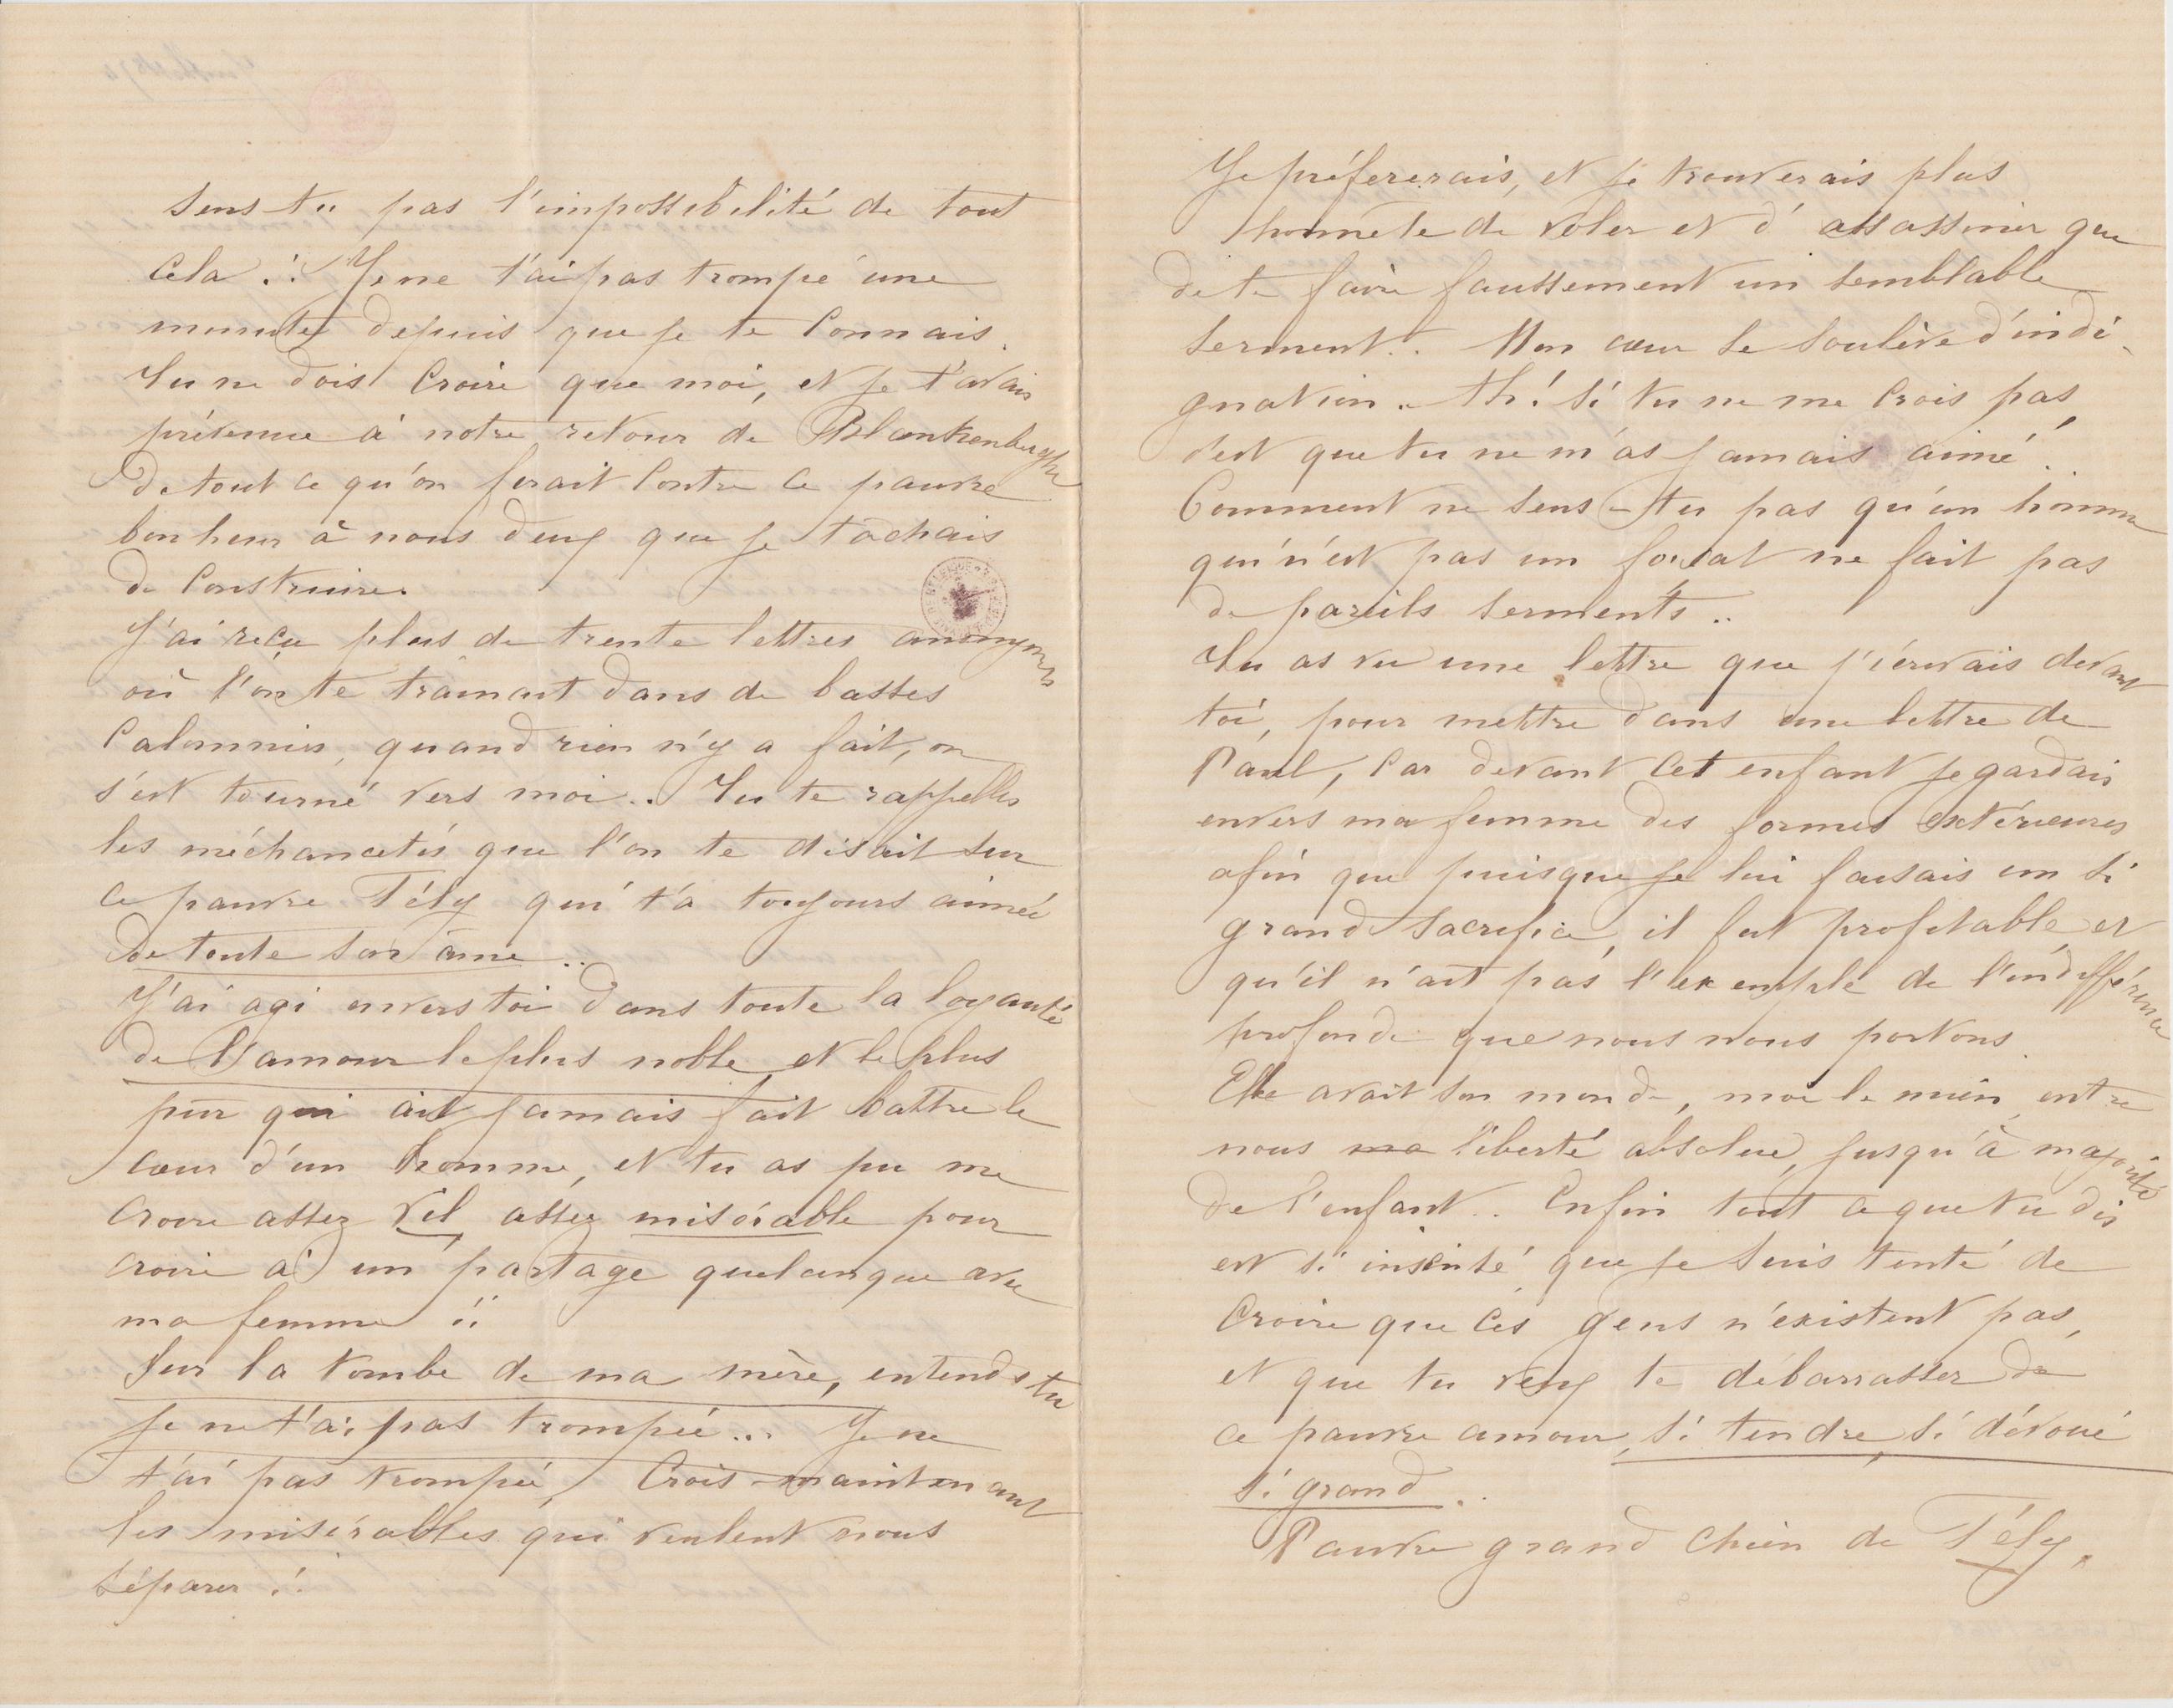 sens tu pas l'impossibilité de tout
cela !! Je ne t'ai pas trompé une
minute depuis que je te connais.
Tu ne dois croire que moi, et je t'avais
prévenue à notre retour de Blankenberghe
de tout ce qu'on ferait contre ce pauvre
bonheur à nous deux que je tâchais
de construire.
J'ai reçu plus de trente lettres anonymes
où l'on te traînait dans de basses
calomnies, quand rien n'y a fait, on
s'est tourné vers moi.. Tu te rappelles
les méchancetés que l'on te disait sur
ce pauvre Fély qui t'a toujours aimée
de toute son âme..
J'ai agi envers toi dans toute la loyauté
de l'amour le plus noble et le plus
pur qui ait jamais fait battre le
cœur d'un homme, et tu as pu me
croire assez vil, assez misérable pour
croire à un partage quelconque avec
ma femme !!
Sur la tombe de ma mère, entends tu
je ne t'ai pas trompée... Je ne
t'ai pas trompée, Crois maintenant
les misérables qui veulent nous
séparer !!
Je préfererais, et je trouverais plus
honnête de voler et d'assassiner que
de te faire faussement un semblable
serment.. Mon cœur se soulève d'indi-
gnation. Ah! si tu ne me crois pas,
c'est que tu ne m'as jamais aimé..
Comment ne sens-tu pas qu'un homme
qui n'est pas un forçat ne fait pas
de pareils serments..
Tu as vu une lettre que j'écrivais devant
toi, pour mettre dans une lettre de
Paul, car devant cet enfant je gardais
envers ma femme des formes extérieures
afin que puisque je lui faisais un si
grand sacrifice, il fut profitable et
qu'il n'ait pas l'exemple de l'indifférence
profonde que nous nous portons.
Elle avait son monde, moi le mien, entre
nous ma liberté absolue, jusqu'à majorité
de l'enfant.. Enfin tout ce que tu dis
est si insensé que je suis tenté de
croire que ces gens n'existent pas,
et que tu veux te débarrasser de
ce pauvre amour, si tendre, si dévoué
si grand..
Pauvre grand chien de Fély.